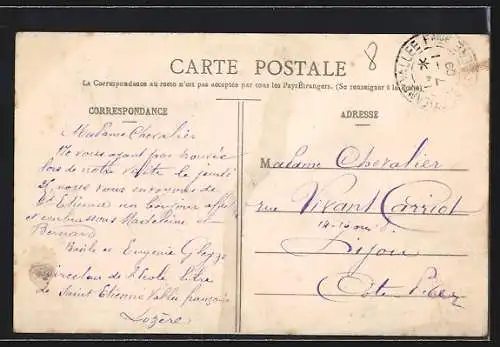 8
CARTE POSTALE
La Correspondance au recto n'est pas acceptée par tous les Pays Étrangers. (Se renseigner à la Poste)
CORRESPONDANCE
ADRESSE
Madame Chevalier
Ne vous ayant pas trouvée
lors de notre visite le jeudi
nous vous envoyons de
St Etienne un bonjour affet
et embrassons Madeleine et
Bernard
Basile et Eugenie
Directeur de l'Ecole libre
de Saint Etienne Vallée française
Lozère
Madame Chevalier
rue Vivant Carriot
Dijon
Côte d'Or